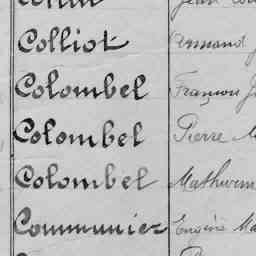 Colliot Armand
Colombel François J
Colombel Pierre
Colombel Mathurin
Communier Eugène Ma